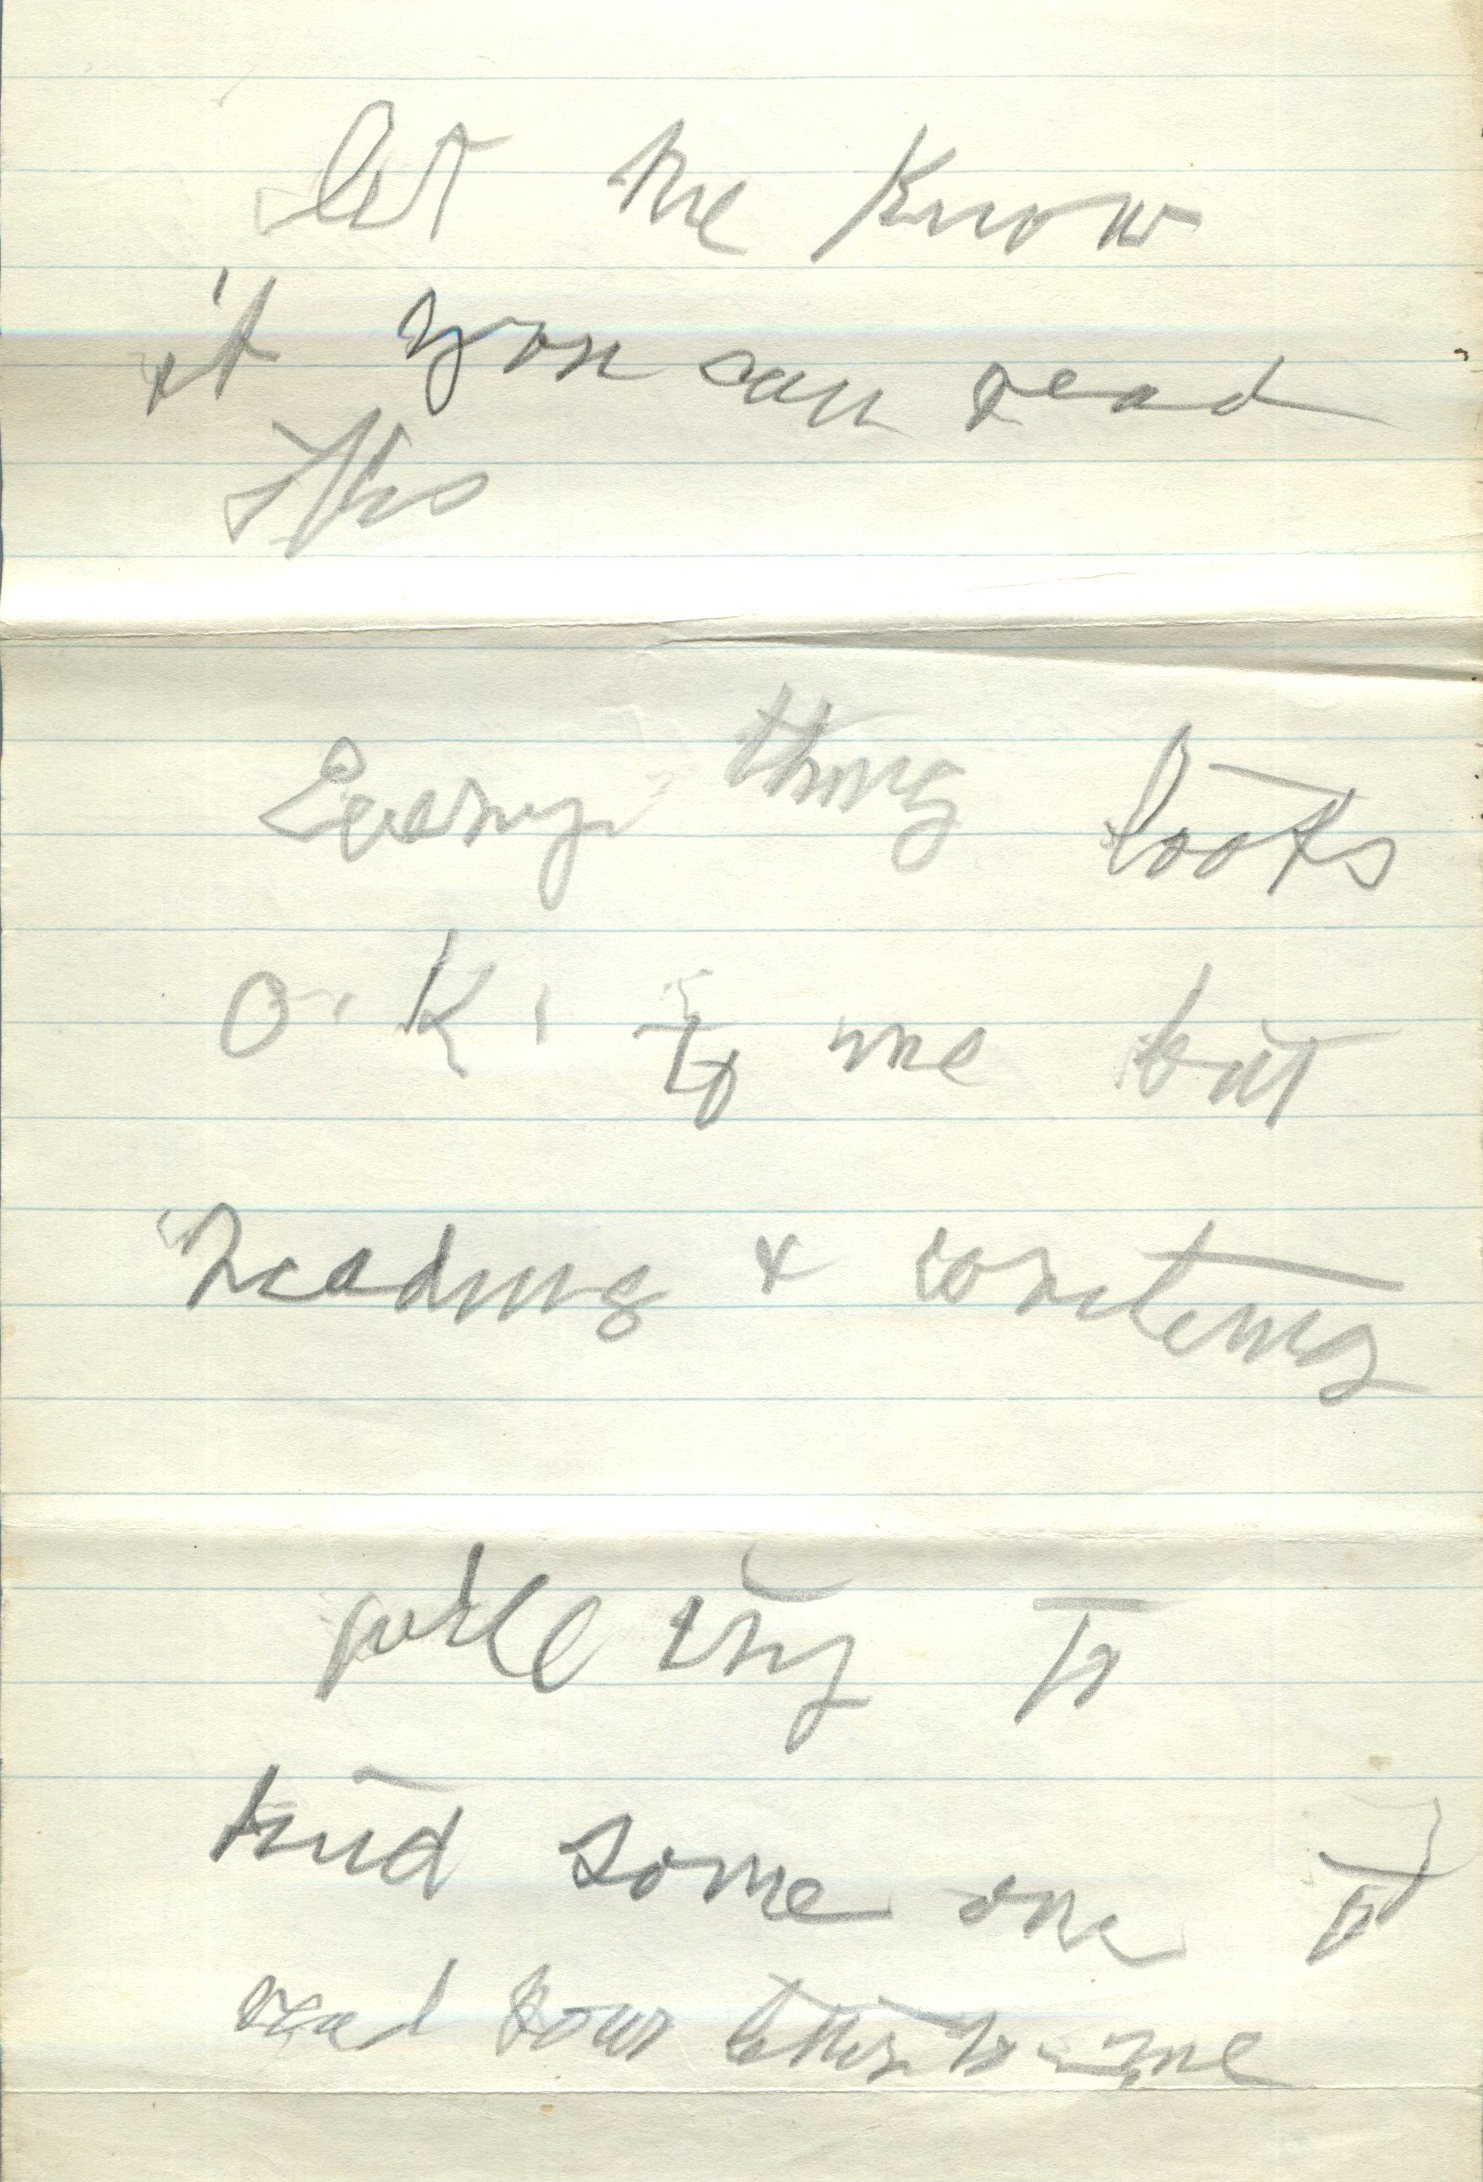 let me know
if you can read
this
Every thing looks
O.K. to me but
Reading & writing
will try to
find some one to
read your letters to me